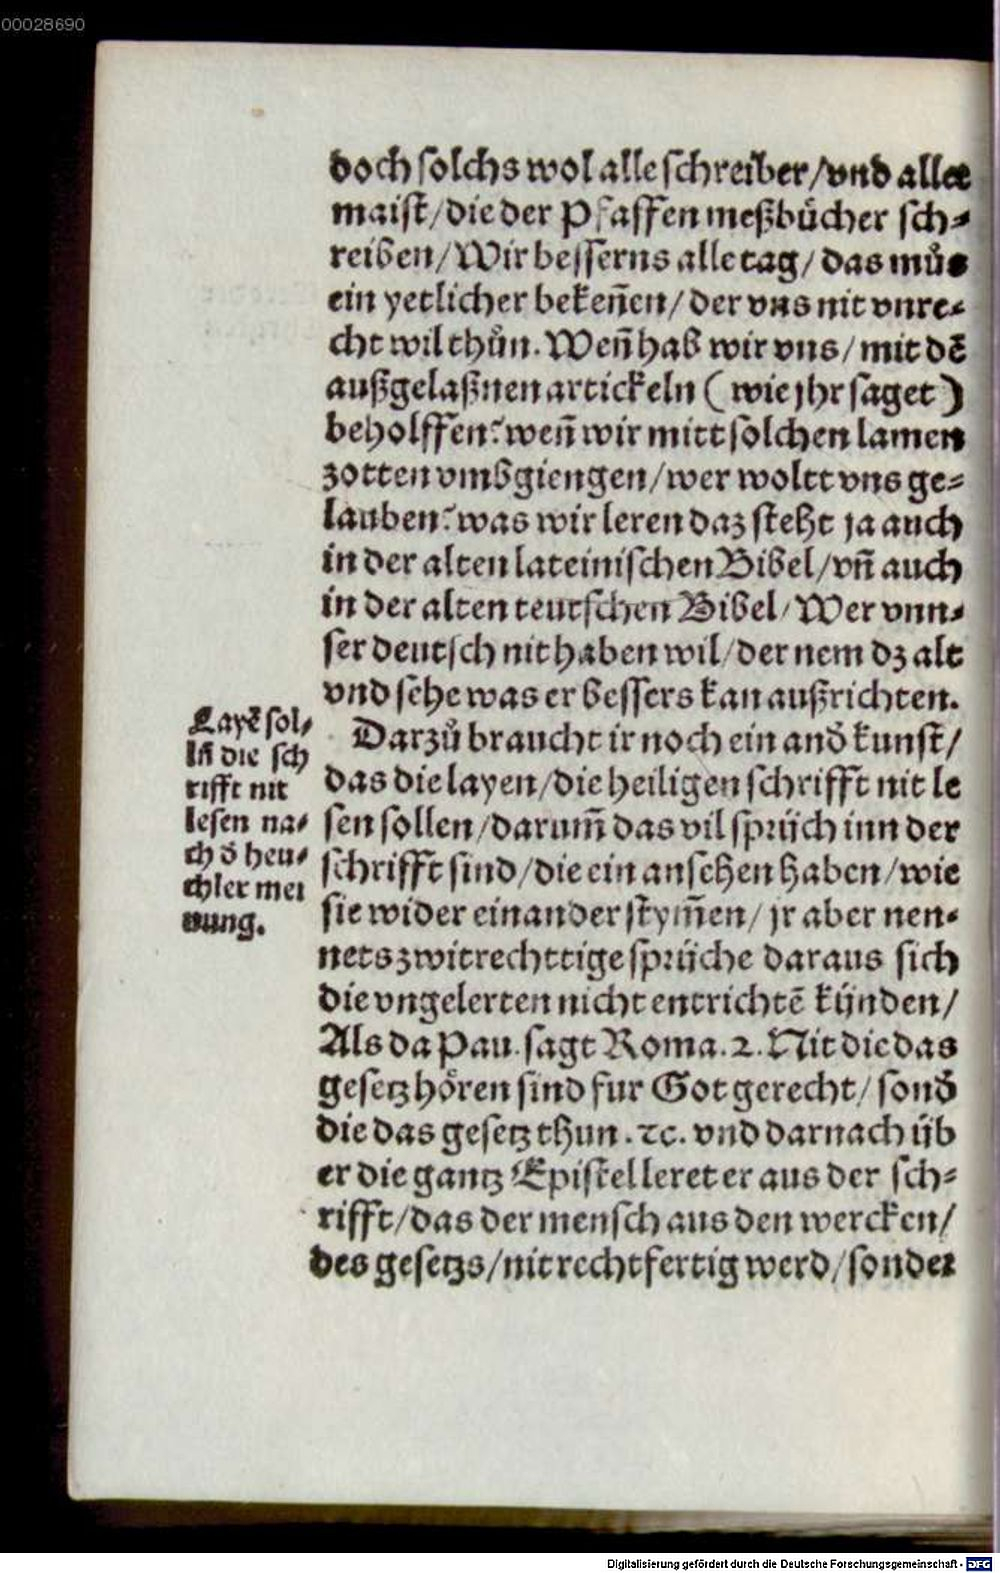 00028690
doch solchs wol alle schreiber/vnd aller
maist/die der Pfaffen meßbücher sch⸗
reiben/Wir besserns alle tag/das můs
ein yetlicher bekeñen/der vns nit vnre⸗
cht wil thůn. Weñ hab wir vns/mit dẽ
außgelaßnen artickeln (wie jhr saget)
beholffen? weñ wir mitt solchen lamen
zotten vmbgiengen/wer woltt vns ge⸗
lauben? was wir leren daz steht ja auch
in der alten lateinischen Bibel/vñ auch
in der alten teutschen Bibel/Wer vnn⸗
ser deutsch nit haben wil/der nem dz alt
vnd sehe was er bessers kan außrichten.
Darzů braucht ir noch ein andʼ kunst/
das die layen/die heiligen schrifft nit le
sen sollen/darum̃ das vil sprüch inn der
schrifft sind/die ein ansehen haben/wie
sie wider einander stym̃en/jr aber nen⸗
nets zwitrechttige sprüche daraus sich
die vngelerten nicht entrichtẽ künden/
Als da Pau. sagt Roma. 2. Nit die das
gesetz hören sind fur Got gerecht/sondʼ
die das gesetz thun. ⁊c. vnd darnach üb
er die gantz Epistel leret er aus der sch⸗
rifft/das der mensch aus den wercken/
des gesetzs/nit rechtfertig werd/sonder
Layẽ sol⸗
lñ die sch
rifft nit
lesen na⸗
ch dʼ heu⸗
chler mei
nung.
Digitalisierung gefördert durch die Deutsche Forschungsgemeinschaft - DFG